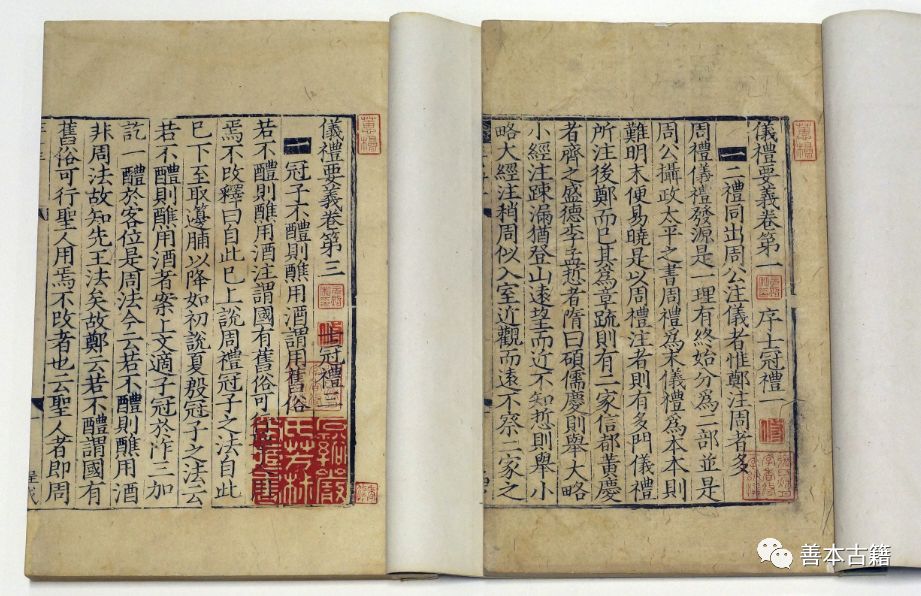 儀禮要義卷第一 序士冠禮一
一 二禮同出周公注儀者惟鄭注周者多
周禮儀禮發源是一理有終始分為二部並是
周公攝政太平之書周禮為末儀禮為本本則
難明末便易曉是以周禮注者則有多門儀禮
所注後鄭而已其為章疏則有二家信都黃慶
者齊之盛德李孟悊者隋曰碩儒慶則舉大略
小經注疎漏猶登山遠望而近不知悊則舉小
略大經注稍周似入室近觀而遠不察二家之
儀禮要義卷第三 冠禮三
一 冠子不醴則醮用酒謂用舊俗
若不醴則醮用酒注謂國有舊俗可
焉不改釋曰自此已上說周禮冠子之法自此
已下至取籩脯以降如初說夏殷冠子之法云
若不醴則醮用酒者案上文適子冠於阼三加
訖一醴於客位是周法今云若不醴則醮用酒
非周法故知先王法矣故鄭云若不醴謂國有
舊俗可行聖人用焉不改者也云聖人者即周
善本古籍